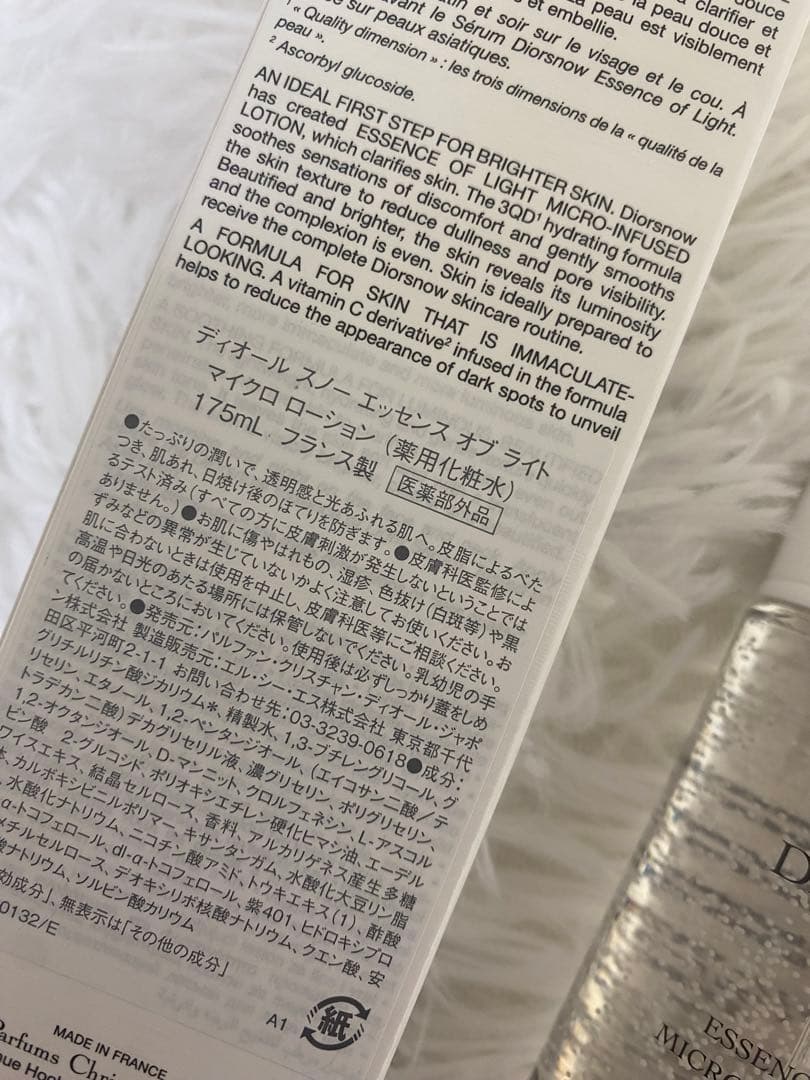 douce
clarifier et
la peau douce et
tin et soir sur le visage et le cou. À
et embellie. La peau est visiblement
avant le Sérum Diorsnow Essence of Light.
sur peaux asiatiques.
¹ « Quality dimension » : les trois dimensions de la « qualité de la
peau ».
² Ascorbyl glucoside.
AN IDEAL FIRST STEP FOR BRIGHTER SKIN. Diorsnow
has created ESSENCE OF LIGHT MICRO-INFUSED
LOTION, which clarifies skin. The 3QD¹ hydrating formula
soothes sensations of discomfort and gently smooths
the skin texture to reduce dullness and pore visibility.
Beautified and brighter, the skin reveals its luminosity
and the complexion is even. Skin is ideally prepared to
receive the complete Diorsnow skincare routine.
A FORMULA FOR SKIN THAT IS IMMACULATE-
LOOKING. A vitamin C derivative² infused in the formula
helps to reduce the appearance of dark spots to unveil
ディオール スノー エッセンス オブ ライト
マイクロ ローション (薬用化粧水)
175mL フランス製 医薬部外品
●たっぷりの潤いで、透明感と光あふれる肌へ。皮脂によるべた
つき、肌あれ、日焼け後のほてりを防ぎます。●皮膚科医監修によ
るテスト済み(すべての方に皮膚刺激が発生しないということでは
ありません。)●お肌に傷やはれもの、湿疹、色抜け(白斑等)や黒
ずみなどの異常が生じていないかよく注意してお使いください。お
肌に合わないときは使用を中止し、皮膚科医等にご相談ください。
高温や日光のあたる場所には保管しないでください。乳幼児の手
の届かないところにおいてください。使用後は必ずしっかり蓋をしめ
てください。●発売元:パルファン・クリスチャン・ディオール・ジャポ
ン株式会社 製造販売元:エル・シー・エス株式会社 東京都千代
田区平河町2-1-1 お問い合わせ先:03-3239-0618●成分:
グリチルリチン酸ジカリウム*、精製水、1,3-ブチレングリコール、グ
リセリン、エタノール、1,2-ペンタンジオール、(エイコサン二酸/テ
トラデカン二酸)デカグリセリル液、濃グリセリン、ポリグリセリン、
1,2-オクタンジオール、D-マンニット、クロルフェネシン、L-アスコル
ビン酸 2-グルコシド、ポリオキシエチレン硬化ヒマシ油、エーデル
ワイスエキス、結晶セルロース、香料、アルカリゲネス産生多糖
体、カルボキシビニルポリマー、キサンタンガム、水酸化大豆リン脂
、水酸化ナトリウム、ニコチン酸アミド、トウキエキス(1)、酢酸
α-トコフェロール、dl-α-トコフェロール、紫401、ヒドロキシプロ
メチルセルロース、デオキシリボ核酸ナトリウム、クエン酸、安
酸ナトリウム、ソルビン酸カリウム
効成分」、無表示は「その他の成分」
0132/E
A1 紙
MADE IN FRANCE
Parfums Chri
nue Hoch
D
ESSENC
MICRO